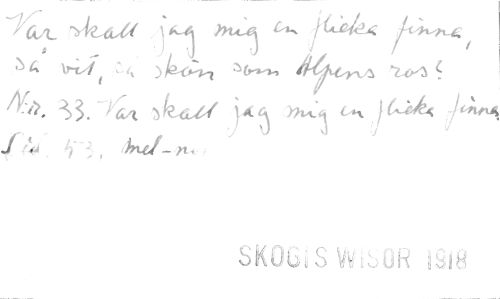 Var skall jag mig en flicka finna,
så vit, så skön som Alpens ros?
N:r. 33. Var skall jag mig en flicka finna,
Sid. 53. mel-n
SKOGIS WISOR 1918